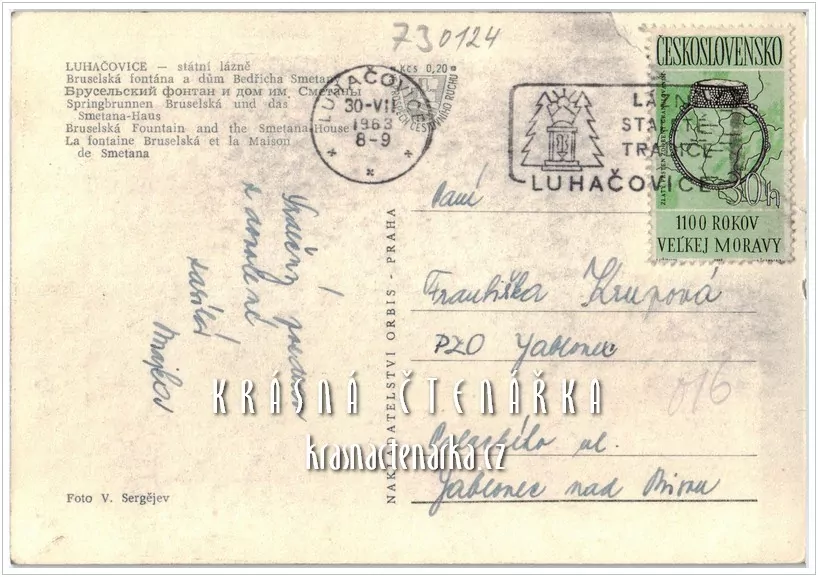 730124
LUHAČOVICE — státní lázně
Bruselská fontána a dům Bedřicha Smetany
Брусельский фонтан и дом им. Сметаны
Springbrunnen Bruselská und das
Smetana-Haus
Bruselská Fountain and the Smetana-House
La fontaine Bruselská et la Maison
de Smetana
Kčs 0,20
CESTOVNÍHO RUCHU
LUHAČOVICE
30-VII
1963
8-9
LÁZNĚ
STALETÉ
TRADICE
LUHAČOVICE
ČESKOSLOVENSKO
30h
1100 ROKOV
VEĽKEJ MORAVY
Srdečný
zasílá
Paní
Františka Krupová
PZO Jablonec
016
ul.
Jablonec nad Nisou
NAKLADATELSTVÍ ORBIS - PRAHA
KRÁSNÁ ČTENÁŘKA
krasnactenarka.cz
Foto V. Sergějev